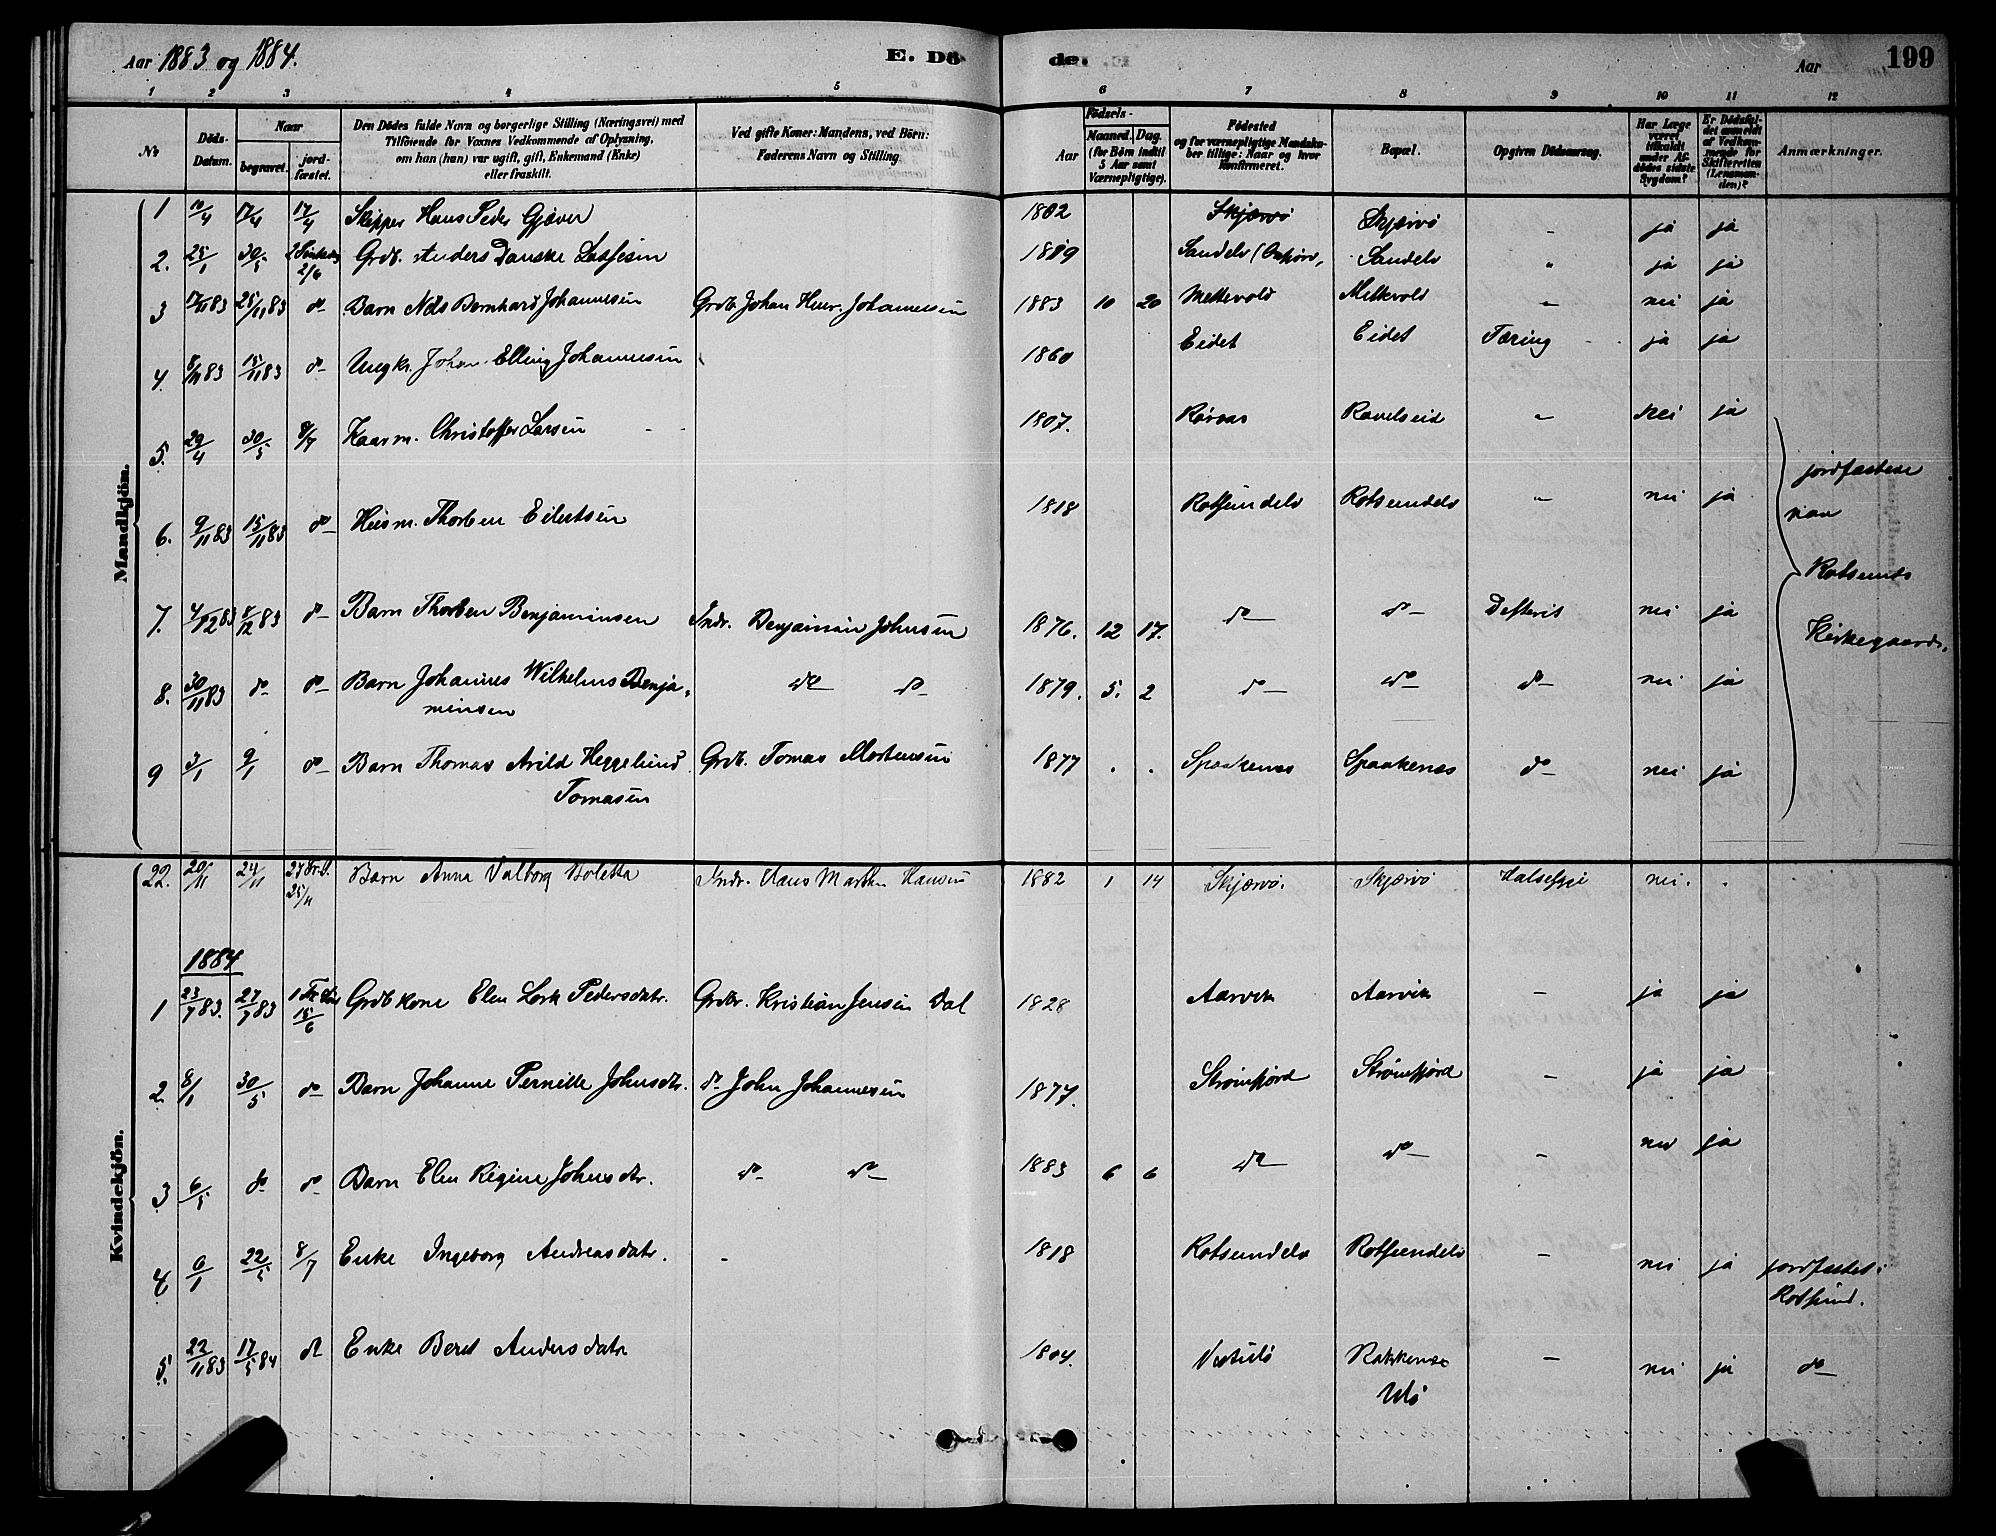 Aar 1883 og 1884. E. Dö- de. Aar 199
1 2 3 4 5 6 7 8 9 10 11 12
No
Döds-Datum.
Naar
begravet.
jord-fæstet.
Den Dödes fulde Navn og borgerlige Stilling (Næringsvei) med
Tilföiende for Voxnes Vedkommende af Oplysning,
om han (hun) var ugift, gift, Enkemand (Enke)
eller fraskilt.
Ved gifte Koner: Mandens, ved Börn:
Faderens Navn og Stilling.
Födsels-
Aar
Maaned. Dag.
(for Börn indtil
5 Aar samt
Værnepligtige).
Födested
og for værnepligtige Mandska-
ber tillige: Naar og hvor
Konfirmeret.
Bopæl.
Opgiven Dödsaarsag.
Har Læge
været
tilkaldt
under Af-
dödes sidste
Sygdom?
Er Dödsfal-
det anmeldt
af Vedkom-
mende for
Skifteretten
(Lensman-
den)?
Anmærkninger.
Mandkjön.
1 10/4 17/4 17/4 Skipper Hans Peder Gjæver 1802 Skjærvö Skjærvö - ja ja
2. 25/1 30/5 2/6 Grdb. Anders Danske Lassesen 1819 Sandelv Sandelv " ja ja
3 25/11 83 do Barn Nils Bernhard Johannesen Grdb. Johan Henr. Johannesen 1883 10 20 Mettevold Mettevold - nei ja
4. 15/11 83 do Ungk. Johan Elling Johannesen 1860 Eidet Eidet Tæring ja ja
5. 29/4 30/5 8/7 Kaarm. Christoffer Larsen 1807. Ravelseid - nei ja
6. 9/11 83 15/11 83 do Husm. Thorben Eilertsen 1818 Rotsundelv Rotsundelv - nei ja
7. 4/12 83 8/12 83 do Barn Thorben Benjaminsen Indr. Benjamin Johnsen 1876. 12 17. do do Defterit nei ja
8. 30/11 83 do do Barn Johannes Wilhelms Benja-
minsen do do 1879. 5. 2 do do do nei ja
9 3/1 9/1 do Barn Thomas Arild Heggelund
Tomasen Grdb. Tomas Mortensen 1877 . . Spaakenes Spaakenes do nei ja
jordfæstede
paa
Rotsunds
Kirkegaard.
Kvindekjön.
22. 20/11 24/11 25/11 Barn Anna Valborg Boletta Indr. Hans Marthin Hansen 1882 1 14 Skjærvö. Skjærvö Halsesyge nei. .
1884
1 23/7 83. 27/7 83 15/6 Grdb kone Elen Lork Pedersdatr. Grdbr. Kristian Jensen Dal 1828 Aarvik Aarvik - ja ja
2. 8/1 30/5 do Barn Johanne Pernille Johnsdtr. do John Johannesen 1877. Strömfjord Strömfjord - ja ja
3 6/5 do do Barn Elen Regine Johnsdtr. do do 1883 6 6 do do - nei ja
4 6/1 22/5 8/7 Enke Ingeborg Andreasdatr. - 1818 Rotsundelv Rotsundelv - nei ja jordfæstet i
Rotsund.
5. 22/11 83 17/5 84 do Enke Beret Andersdatr 1804. Rakkenes
Ulö - nei ja do